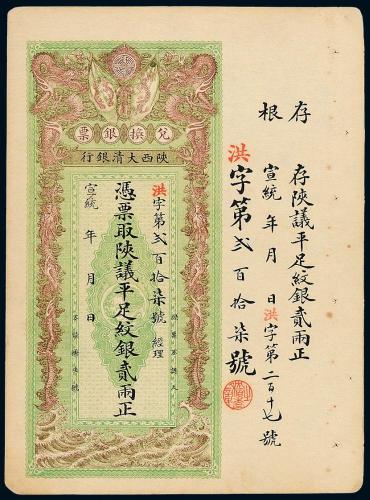 存根
存陝議平足紋銀貳兩正
宣統 年 月 日洪字第二百十七號
洪字第貳百拾柒號
兌換銀票
陝西大清銀行
洪字第貳百拾柒號 經理
憑票取陝議平足紋銀貳兩正
宣統 年 月 日